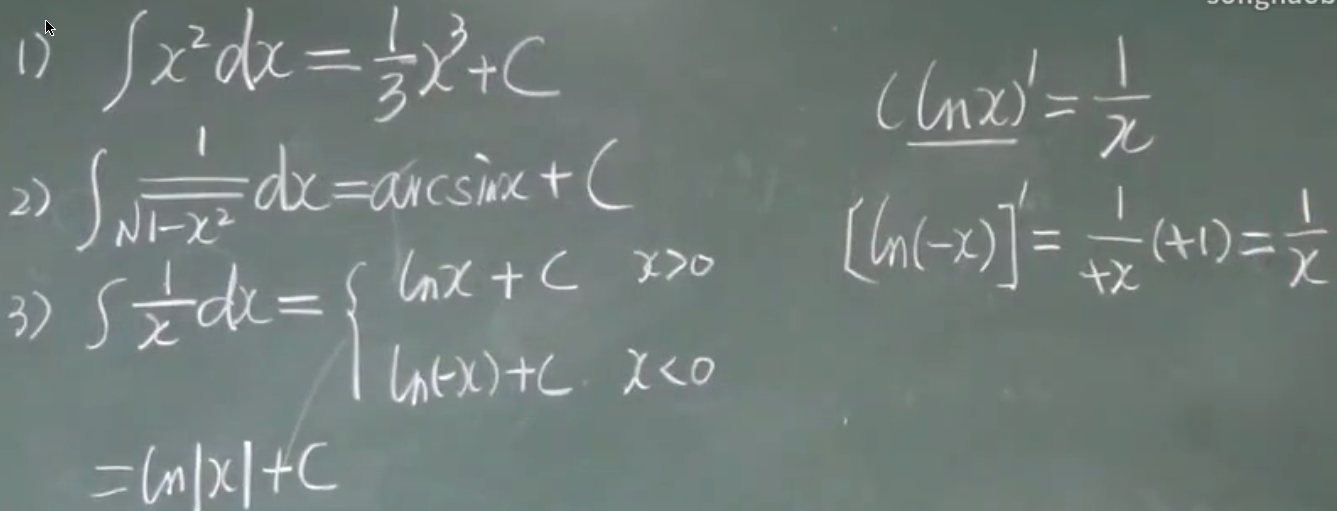 1) ∫x²dx = 1/3 x³ + C
2) ∫ 1/√(1-x²) dx = arcsinx + C
3) ∫ 1/x dx = { lnx + C x>0
ln(-x)+C x<0
= ln|x| + C
(lnx)' = 1/x
[ln(-x)]' = 1/+x (+1) = 1/x